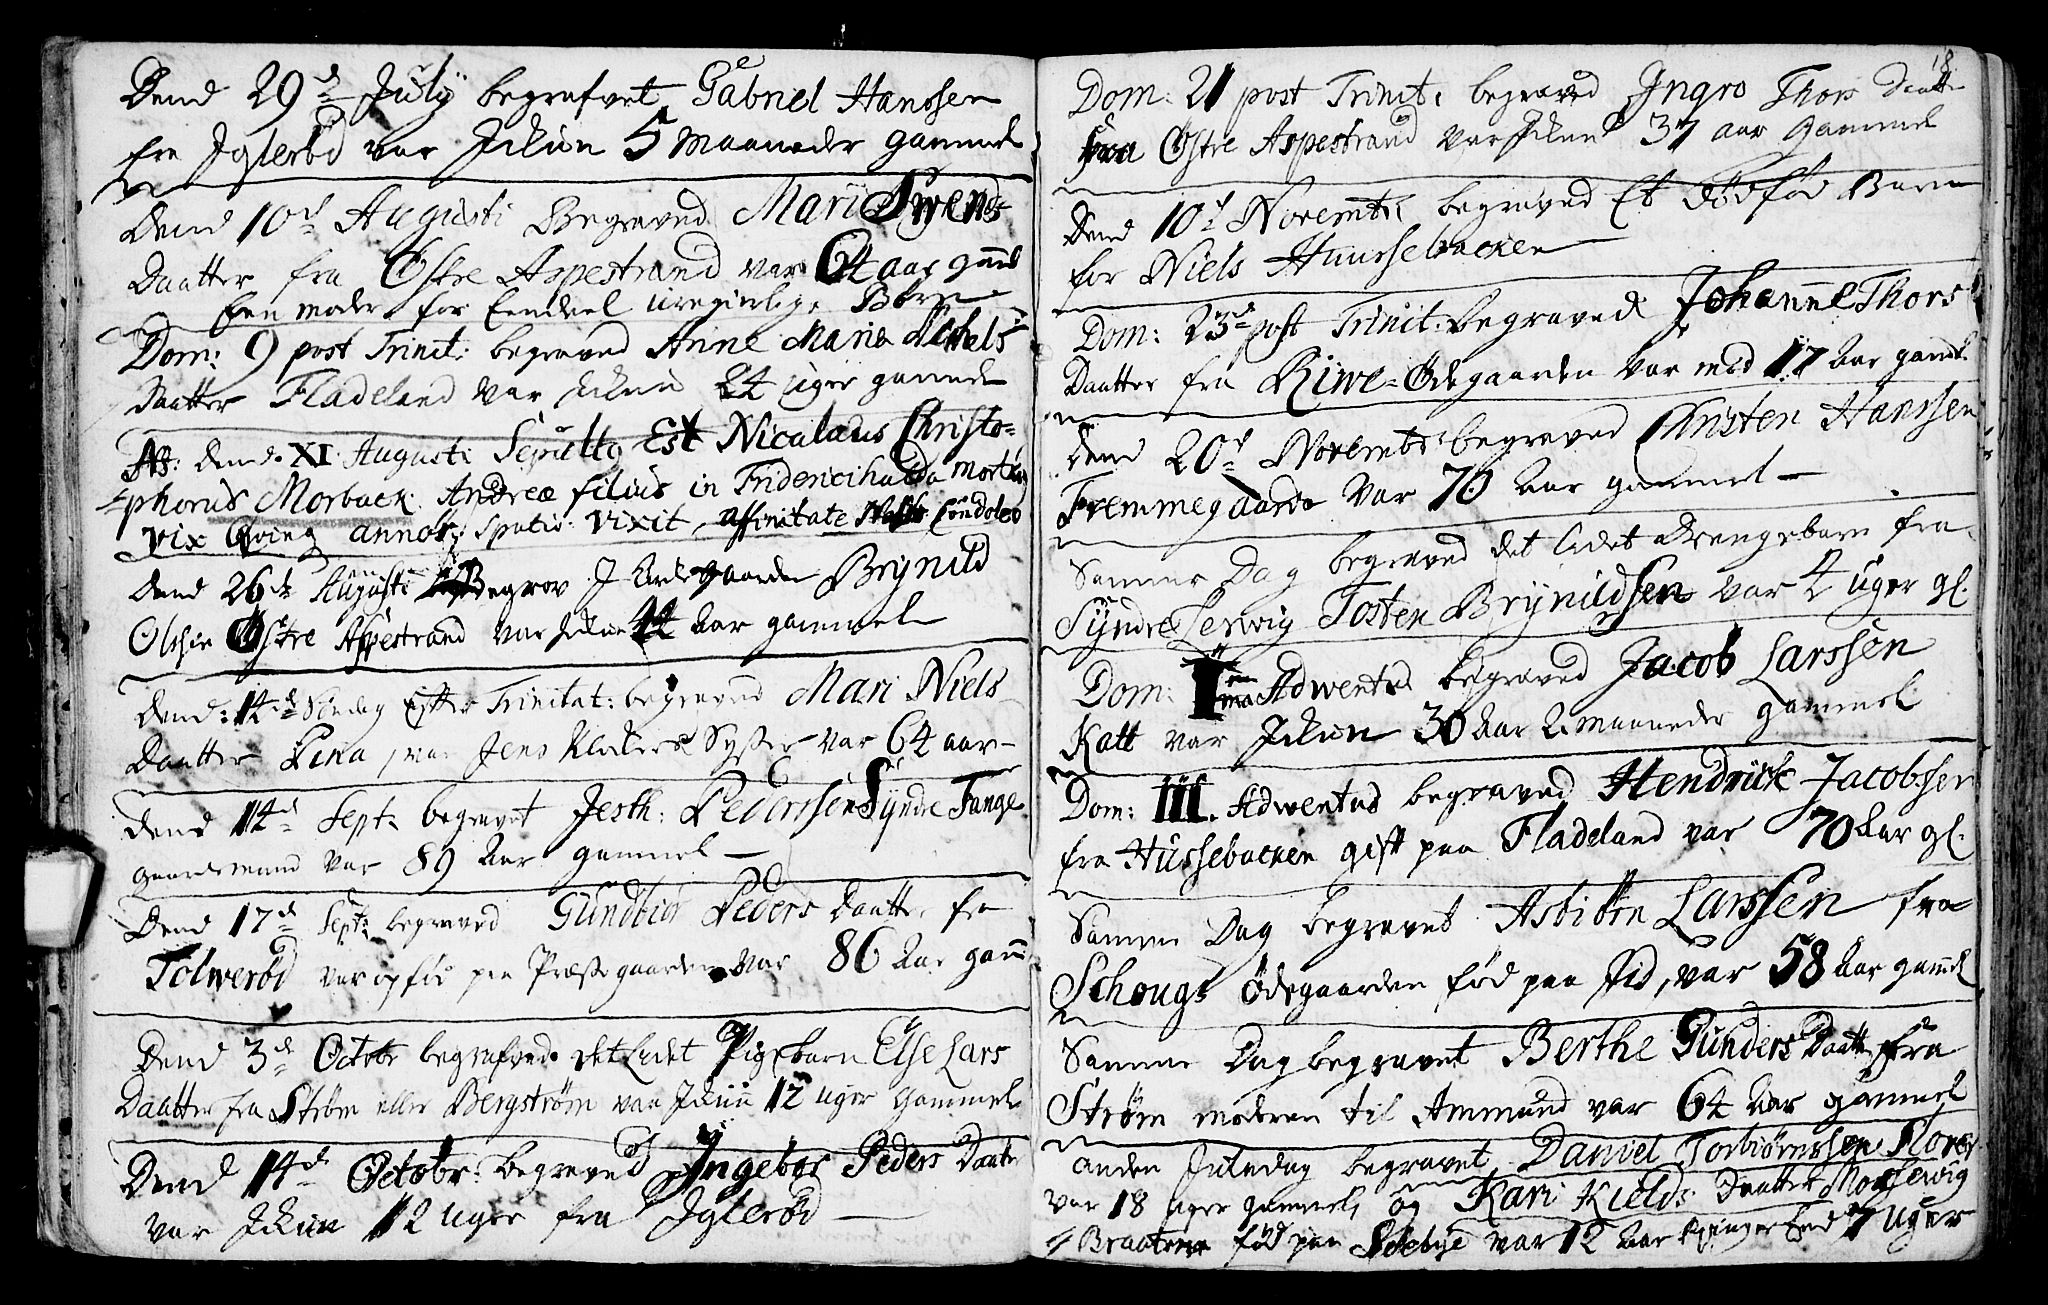 Dend 29de July begrafvet Gabriel Hanssen
fra Iglerød var Ickun 5 Maaneder gammel
Dend 10d Augusti Begraved Mari Swends
Daatter fra Østre Aspestrand var 64 aar gaml
Een moder for Eendeel Børn
Dom: 9 post Trinit: begraved Anne Maria Nickels
Daatter Fladeland var Ickun 24 uger gammel
dend. XI Augusti Sepultq Est Nicalaus Christo=
phorus Morback. Andreæ filius in Fridericihalda
vix Qving annor: spatio vixit, affinitate Condoleo
Dend 26de Augusti Begrov I Kirkegaarden Brynild
Olssen Østre Aspestrand var Ickun 44 Aar gammel
Dend: 14de Søndag Efter Trinitat: begraved Mari Niels
Daatter Lena, var Jens Klockers Syster var 64 aar -
Dend 14d Sept: begravet Jesth: Pederssen Syndre Tange
gaardsmand var 89 Aar gammel -
Dend 17d Sept: begraved Gundbiør Peders Daatter fra
Tolwerød var opfød paa Præstegaarden var 86 Aar gaml
Dend 3de Octobr begrafved det Lidet Pigebarn Else Lars
Daatter fra Strøm eller Bergstrøm var Ickun 12 uger Gammel
Dend 14d Octobr: begraved Ingebor Peders Daatter
var Ickun 12 uger fra Iglerød
18
Dom: 21 post Trinit: begraved Ingro Thors Daatter
fra Østre Aspestrand var Ickun 37 aar Gammel
Dend 10d Novembr: begraved Et dødfød Barn
for Niels Huussebacken
Dom: 23de post Trinit: begraved Johanne Thors
Daatter fra Riwe=Ødegaarden var med 17 Aar gaml
Dend 20d Novembr: begraved Christen Hanssen
Fremmegaarde var 70 Aar gammel -
Samme Dag begraved det lidet Drengebarn fra
Syndre Lerwig Tosten Brynildsen var 4 uger gl.
Dom: I ma Adwentus begraved Jacob Larssen
Katt var Ickun 30 Aar 2 maaneder gammel
Dom: III. Adwentus begraved Hendrick Jacobsen
fra Hussebacken gift paa Fladeland var 70 Aar gl.
Samme Dag begravet Asbiørn Larssen fra
Schougs Ødegaarden fød paa Lid, var 58 Aar gammel
Samme Dag begravet Berthe Gunders Daatter fra
Strøm moderen til Ammund var 64 Aar gammel
Anden Juledag begravet Daniel Torbiørnssen Klover
var 18 uger gammel, og Kari Kields Daatter Morsewig
Braaten fød paa Sdebye var 12 Aar ringer End 7 uger